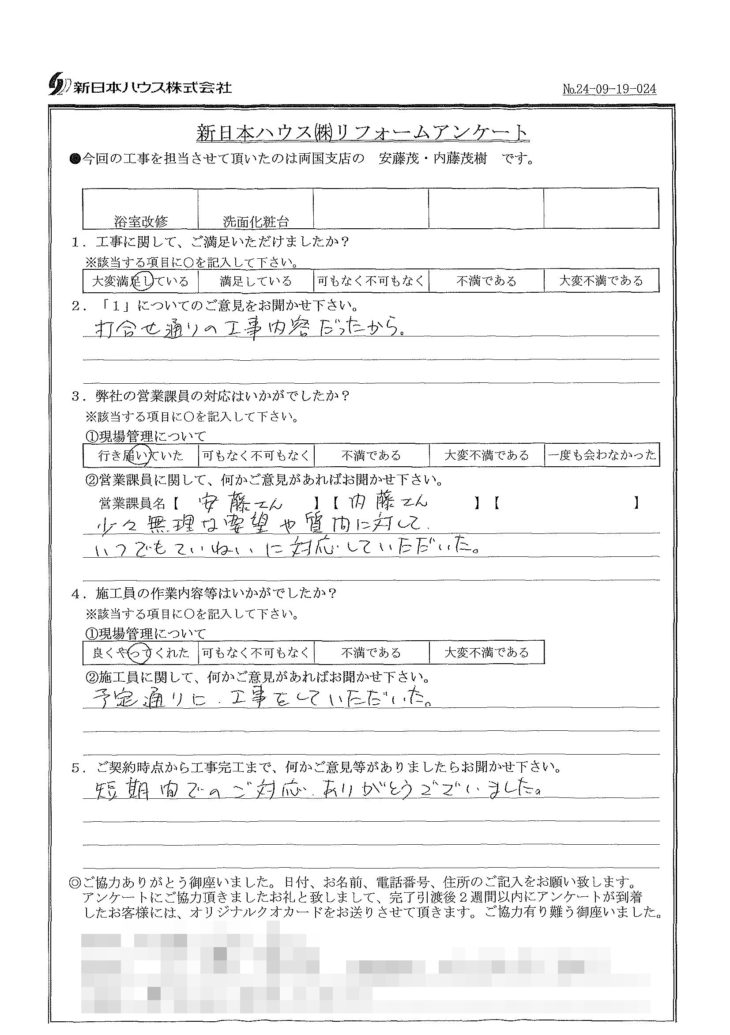 新日本ハウス株式会社
No.24-09-19-024
新日本ハウス㈱リフォームアンケート
●今回の工事を担当させて頂いたのは両国支店の 安藤茂・内藤茂樹 です。
浴室改修 洗面化粧台
1．工事に関して、ご満足いただけましたか？
※該当する項目に○を記入して下さい。
大変満足している 満足している 可もなく不可もなく 不満である 大変不満である
2．「1」についてのご意見をお聞かせ下さい。
打合せ通りの工事内容だったから。
3．弊社の営業課員の対応はいかがでしたか？
※該当する項目に○を記入して下さい。
①現場管理について
行き届いていた 可もなく不可もなく 不満である 大変不満である 一度も会わなかった
②営業課員に関して、何かご意見があればお聞かせ下さい。
営業課員名【 安藤さん 】【 内藤さん 】【 】
少々無理な要望や質問に対して、
いつでもていねいに対応していただいた。
4．施工員の作業内容等はいかがでしたか？
※該当する項目に○を記入して下さい。
①現場管理について
良くやってくれた 可もなく不可もなく 不満である 大変不満である
②施工員に関して、何かご意見があればお聞かせ下さい。
予定通りに、工事をしていただいた。
5．ご契約時点から工事完工まで、何かご意見等がありましたらお聞かせ下さい。
短期間でのご対応、ありがとうございました。
◎ご協力ありがとう御座いました。日付、お名前、電話番号、住所のご記入をお願い致します。
アンケートにご協力頂きましたお礼と致しまして、完了引渡後2週間以内にアンケートが到着
したお客様には、オリジナルクオカードをお送りさせて頂きます。ご協力有り難う御座いました。